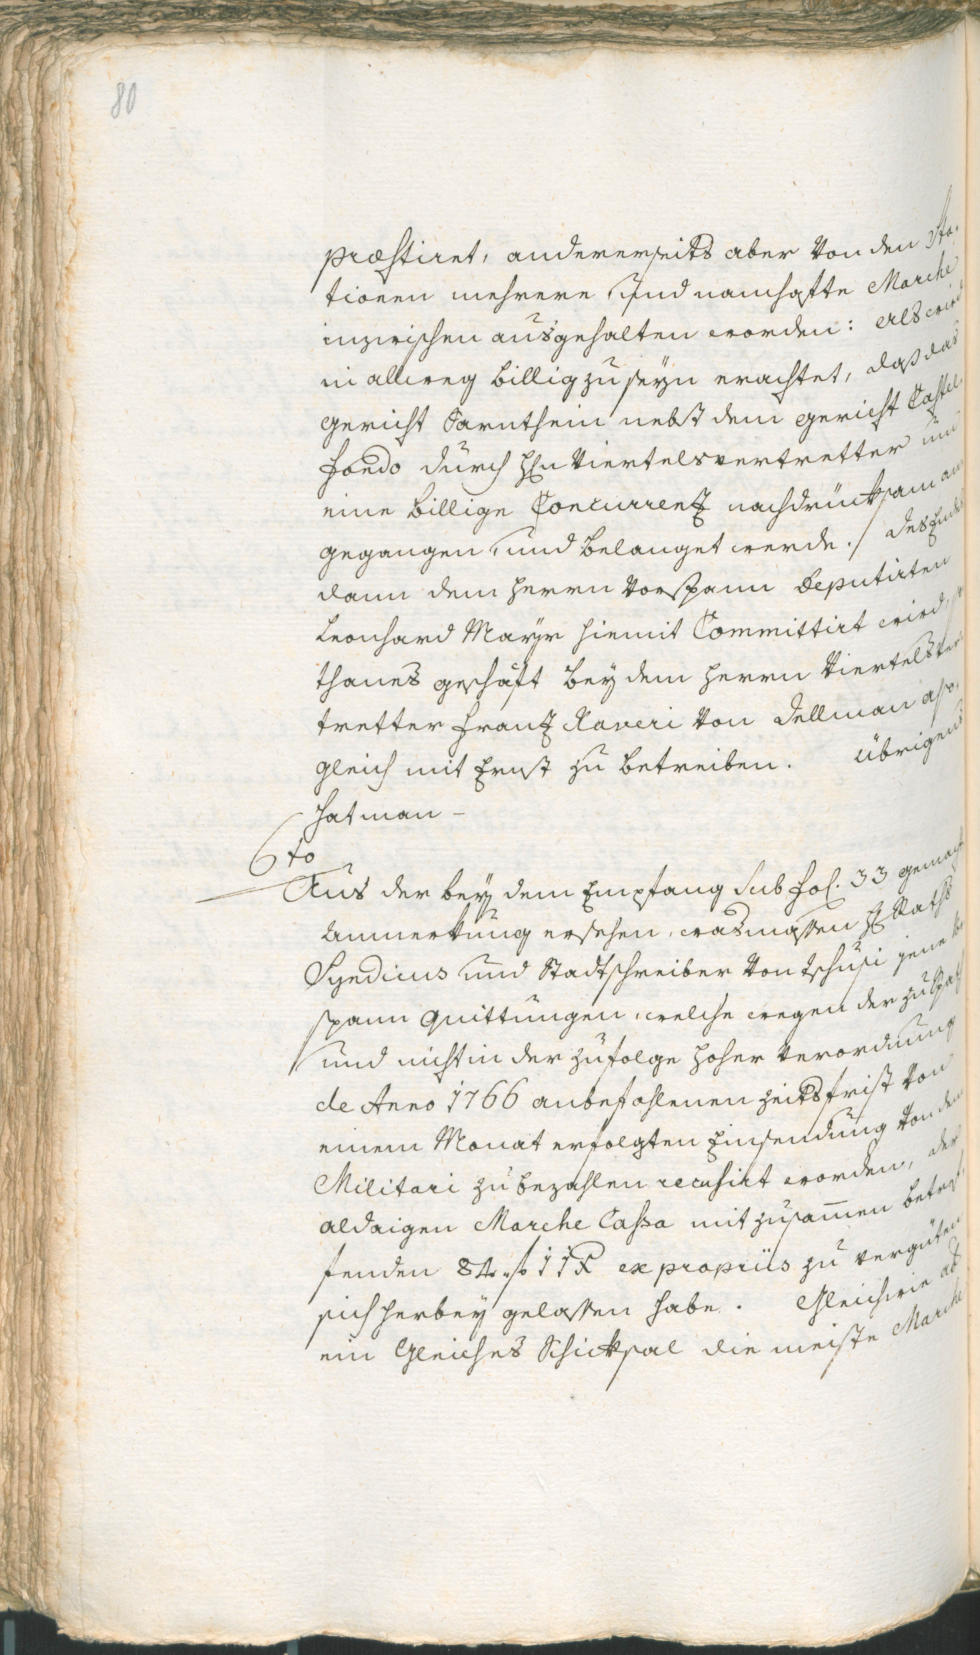 80
præstiret, andererseits aber von den Sta„
tionen mehrere und namhafte Marche
inzwischen ausgehalten worden: Als wird
in allweg billig zu seyn erachtet, daß das
gericht Sarnthein nebst dem gericht Castel„
fondo durch Hℓn Viertelsvertretter um
eine billige Concurrenz nachdrücksam an
gegangen, und belanget werde./ Des Endes
dann dem herrn Vorspann Deputirten
Leonhard Mayr hiemit Committirt wird,
thanes geschäft bey dem herrn Viertelsver
tretter Franz Xaveri von Dellman also„
gleich mit Ernst zu betreiben. Übrigens
hat man –
6to
Aus der bey dem Empfang sub Fol. 33 gemach
Anmerkung ersehen, wasmassen H Raths
Syndicus und Stadtschreiber von Tschusi jene Vor
spann Quittungen, welche wegen der zu spat
und nicht in der zufolge hoher Verordnung
de Anno 1766 anbefohlenen Zeitsfrist von
einem Monat erfolgten Einsendung von dem
Militari zu bezahlen recusirt worden, der
aldaigen Marche Cassa mit zusam̄en betref„
fenden 84 f 11 x ex propriis zu vergüten
sich herbey gelassen habe. Gleichwie a
ein Gleiches Schicksal die meiste Marche